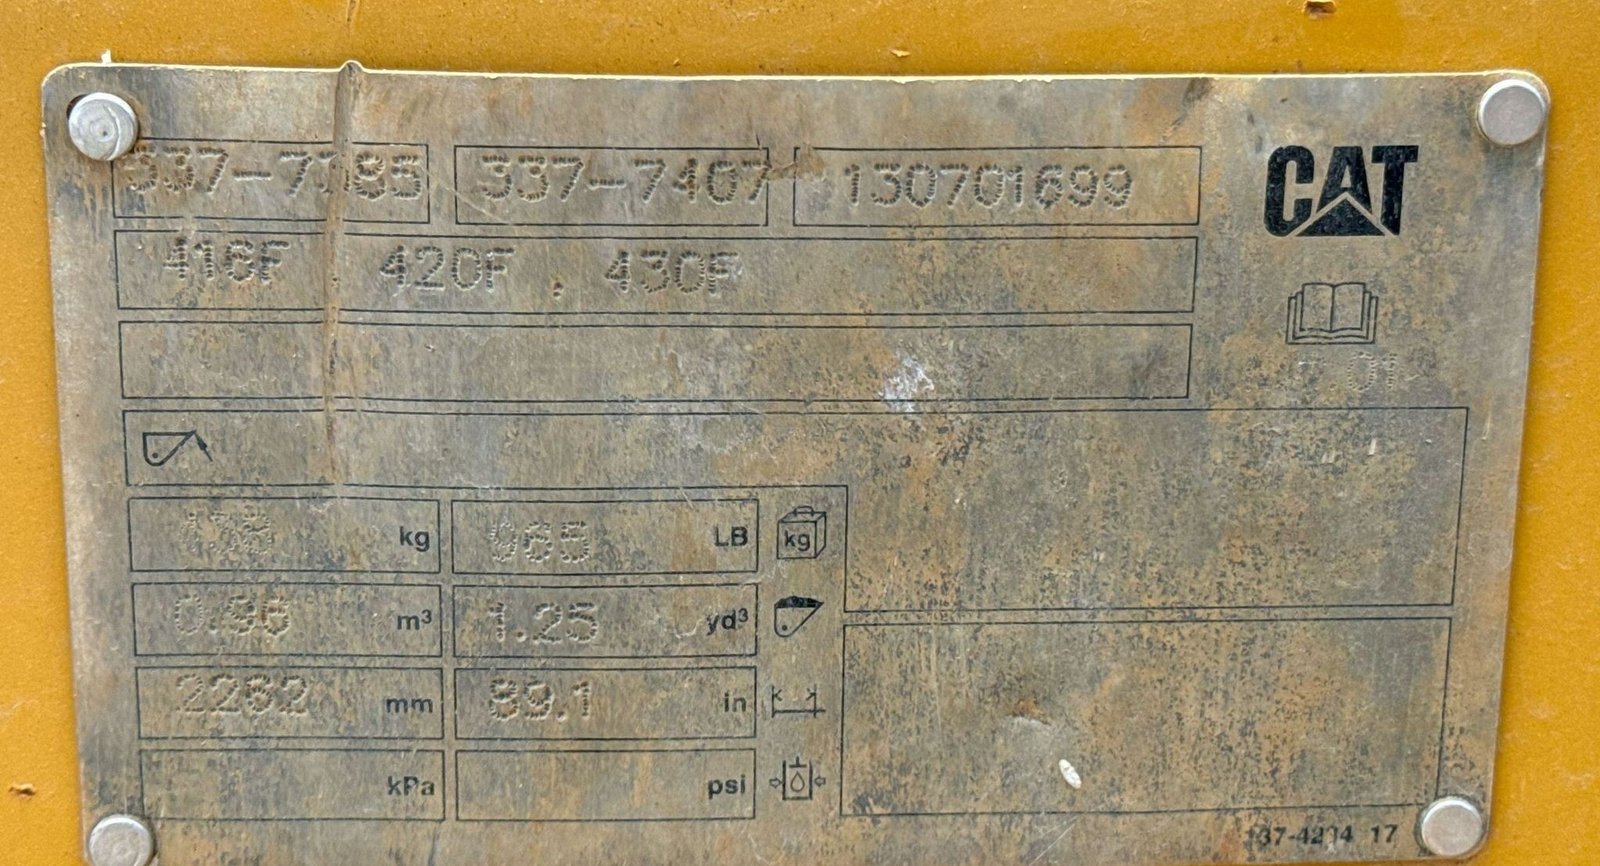 337-7407 130701699 CAT
416F 420F, 430F
kg 965 LB kg
0.96 m³ 1.25 yd³
2262 mm 89.1 in
kPa psi
17